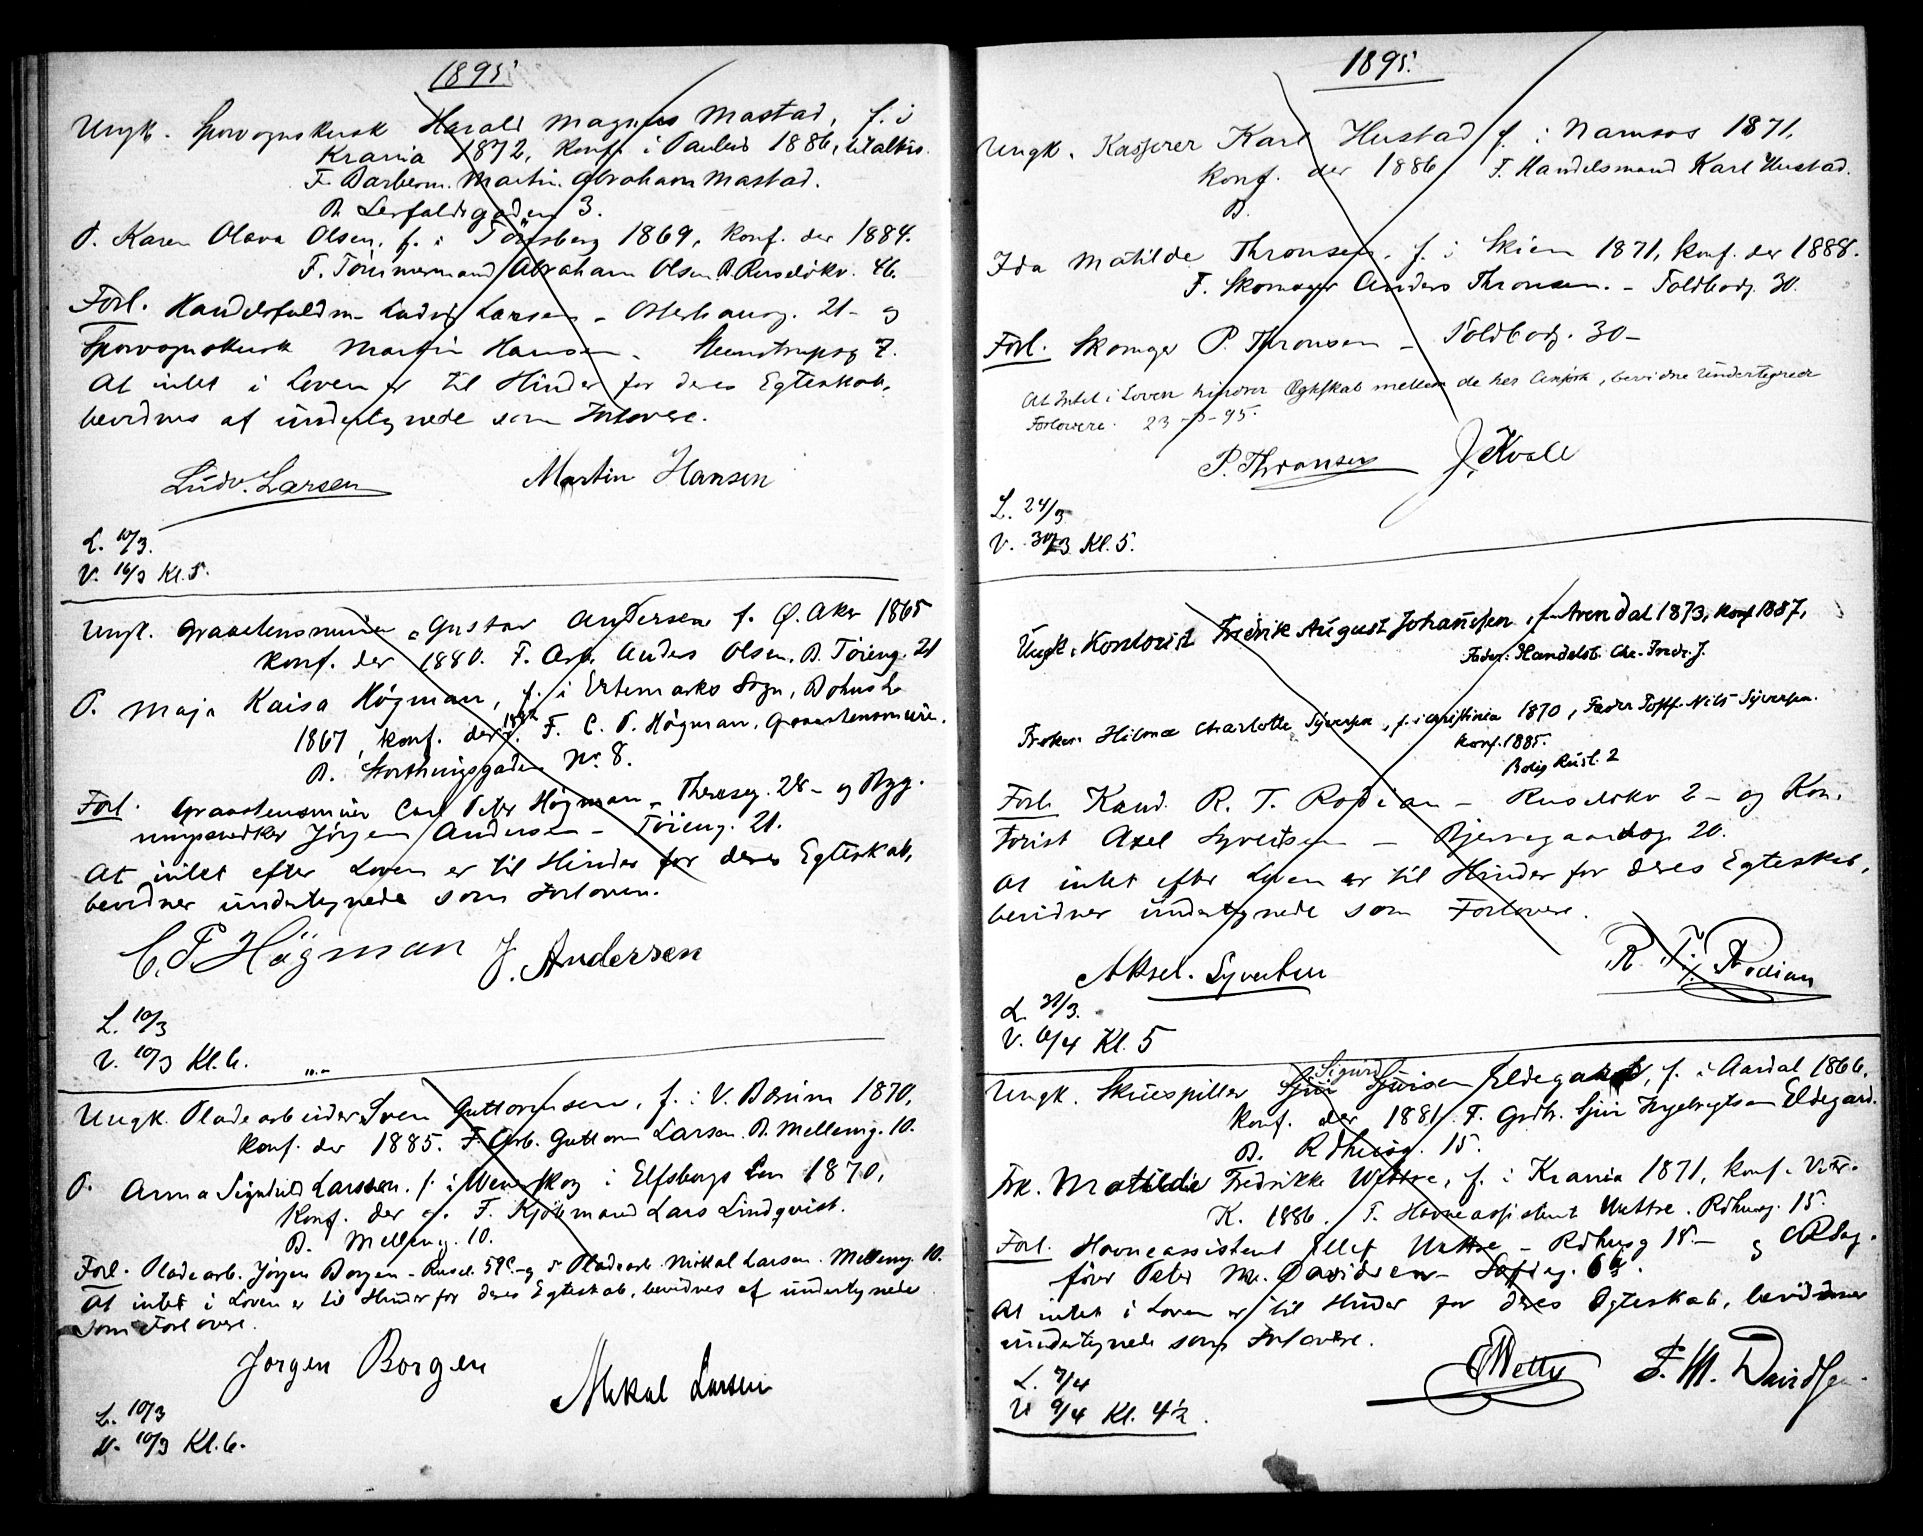 1895.
Ungk. Sporvognskusk Harald Magnus Mastad, f. i
Krania 1872, konf. i Paulus 1886,
F. Barberm. Martin Abraham Mastad.
B. Lerfaldsgaden 3.
P. Karen Olava Olsen, f. i Tönsberg 1869, konf. der 1884.
F. Tömmermand Abraham Olsen B. Ruselökv. 46.
Forl. Handelsfuldm. Ludvig Larsen - Osterhausg. 21 - og
Sporvognskusk Martin Hansen - Steenstrupsg 7.
At intet i Loven er til Hinder for deres Egteskab,
bevidnes af undertegnede som Forlovere.
Ludv. Larsen Martin Hansen
L. 10/3.
V. 16/3 Kl. 5.
Ungk. Graastensminer Gustav Andersen f. Ø. Aker 1865
konf. der 1880. F. Arb. Anders Olsen. B. Töieng. 21
P. Maja Kaisa Högman, f. i Ertemarks Sogn, Bohusl.
1867, konf. der 1882 F. C. P. Högman, Graastensminer.
B. Storthingsgaden Nr. 8.
Forl. Graastensminer Carl Peter Högman - Thereseg. 28 - og Byg-
ningssnedker Jörgen Andersen - Töieng. 21.
At intet efter Loven er til Hinder for deres Egteskab,
bevidner undertegnede som Forlovere.
C. P. Högman J. Andersen
L. 10/3
V. 10/3 Kl. 6.
Ungk. Pladearbeider Sven Guttormsen, f. i V. Bærum 1870,
konf. der 1885. F. Arb. Guttorm Larsen. B. Melleng. 10.
P. Anna Larsson. f. i i Elfsborgs Len 1870,
Konf. der F. Kjöbmand Lars Lindqvist.
B. Melleng. 10.
Forl. Pladearb. Jörgen Borgen - Rusel. 59C. - og Pladearb. Mikal Larsen. Melleng. 10.
At intet i Loven er til Hinder for deres Egteskab, bevidnes af undertegnede
som Forlovere.
Jorgen Borgen Mikal Larsen
L. 10/3
V. 10/3 Kl. 6.
1895.
Ungk. Kasserer Karl Hustad f. i Namsos 1871,
konf. der 1886 F. Handelsmand Karl Hustad.
B.
Ida Matilde Thronsen, f. i Skien 1871, konf. der 1888.
F. Skomager Anders Thronsen. - Toldbodg. 30.
Forl. Skomager P. Thronsen - Toldbodg. 30 -
At Intet i Loven hindrer Ægteskab mellem de her anførte, bevidne undertegnede
Forlovere. 23-3-95.
P. Thronsen J. Kvale
L. 24/3
V. 30/3 Kl. 5.
Ungk. Kontorist Fredrik August Johannsen, f. Arendal 1873, konf 1887,
Fader: Handelsb. Chr. Fredr. J.
Frøken Hilma Charlotte Syversen, f. i Christinia 1870, Fader Nils Syversen.
Konf. 1885.
Bolig Rusl. 2
Forl. Kand. R. T. Rodian - Ruselökv 2 - og Kon-
torist Axel Syvertsen - Bjerregaardsg 20.
At intet efter Loven er til Hinder for deres Egteskab,
bevidner undertegnede som Forlovere.
Aksel. Syvertsen R. T. Rodian
L. 31/3.
V. 6/4 Kl. 5
Ungk. Skuespiller Sigurd Sjursen Eldegard, f. i Aardal 1866,
konf. der 1881. F. Grdbr. Sjur Ingebrigtsen Eldegard.
B. Rdhusg. 15.
Frk. Matilde Fredrikke Wettre, f. i Krania 1871, konf. Vor Fr.
K. 1886. F. Havneassistent Wettre. Rdhusg. 15.
Forl. Havneassistent Ellef Wettre - Rdhusg 15 - og
fører Peter M. Davidsen -
At intet i Loven er til Hinder for deres Egteskab, bevidner
undertegnede som Forlovere.
E Wettre P. M. Davidsen
L. 7/4
V. 9/4 Kl. 4½.